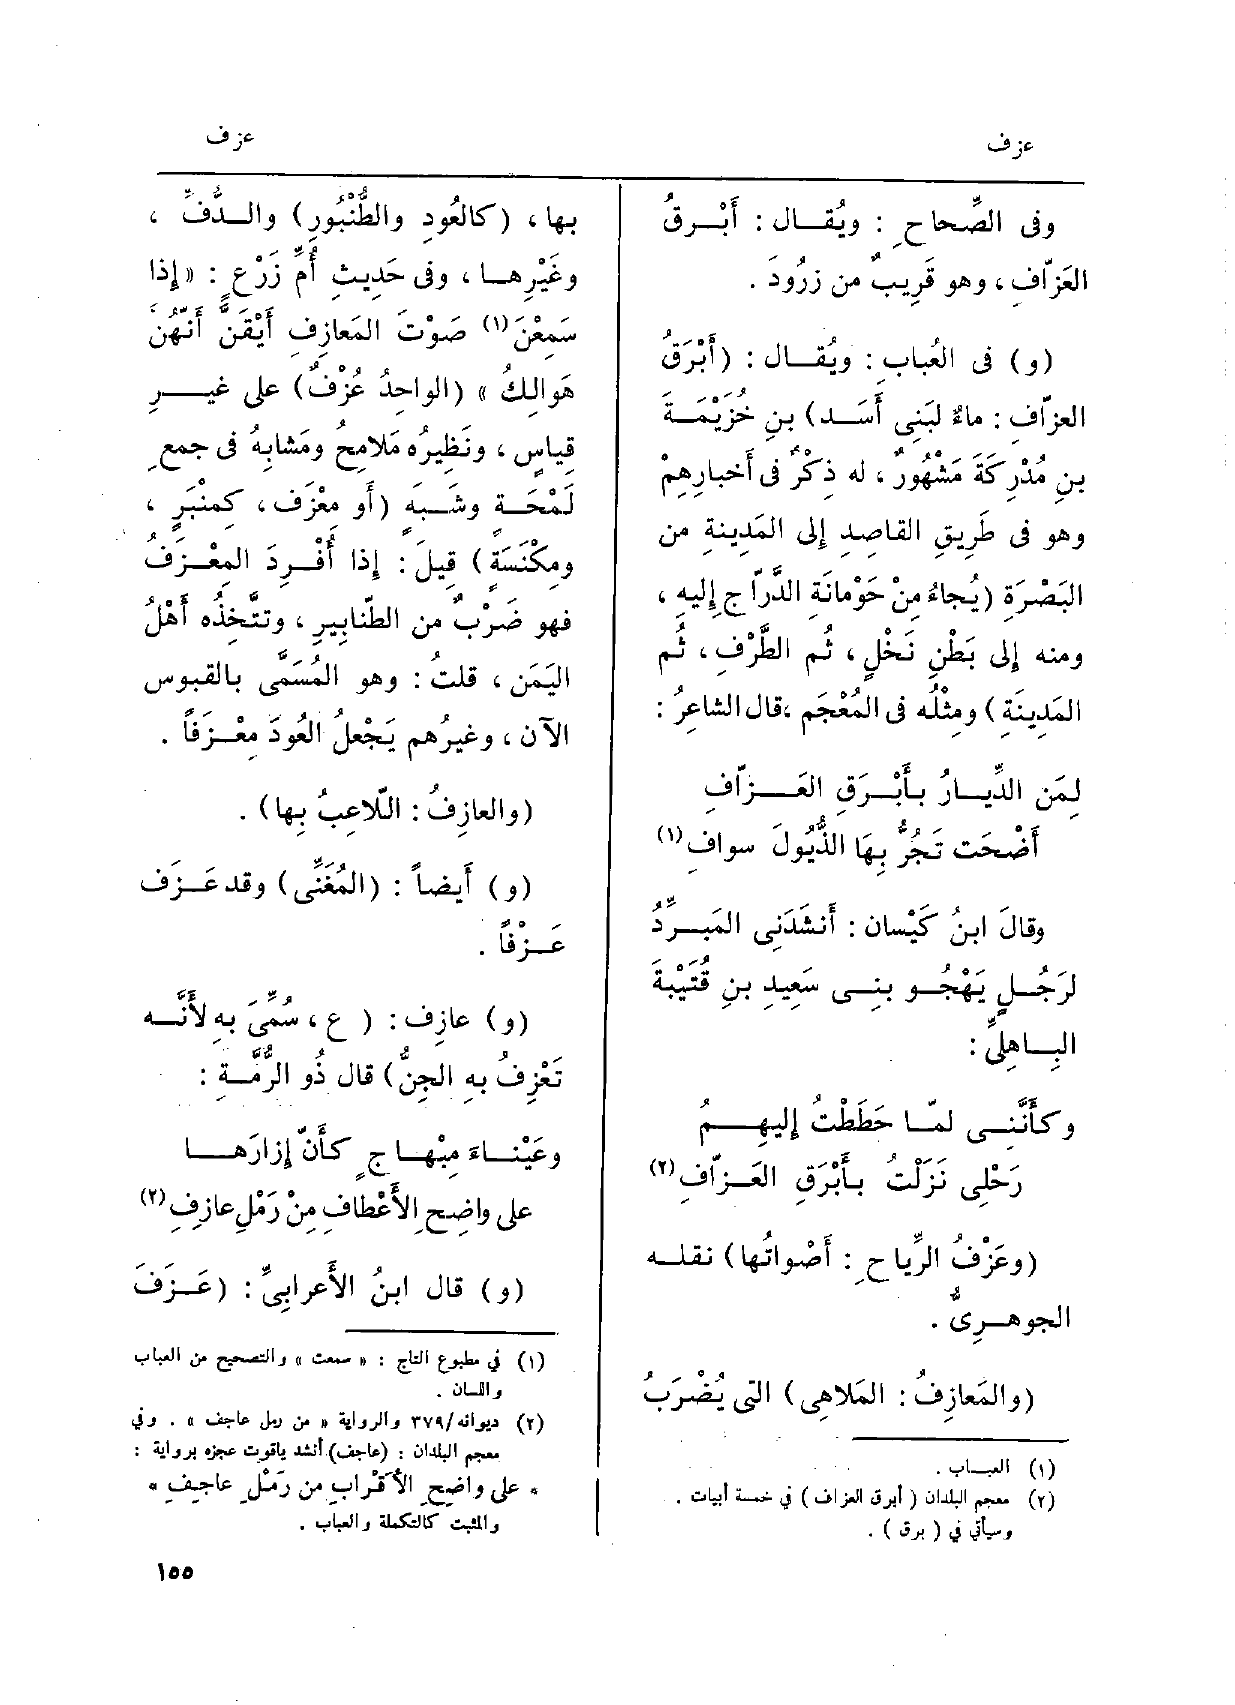 عزف
عزف
وفى الصِّحاحِ : ويُقـــال : أَبْـــرقُ
العَزّافِ ، وهو قَرِيبٌ من زَرُودَ .
(و) فى العُبابِ : ويُقـــال : (أَبْرَقُ
العزّافِ : ماءٌ لبَنِى أَسَــد) بنِ خُزَيْمَــةَ
بنِ مُدْرِكَةَ مَشْهُورٌ ، له ذِكْرٌ فى أَخبارِهِمْ
وهو فى طَرِيقِ القاصِدِ إلى المَدِينةِ من
البَصْرَةِ (يُجاءُ مِنْ حَوْمانَةِ الدَّرّاجِ إليهِ ،
ومنه إلى بَطْنِ نَخْلٍ ، ثُم الطَّرْفِ ، ثُم
المَدِينَةِ) ومثْلُه فى المُعْجَمِ ،قال الشاعرُ :
لِمَن الدِّيــارُ بأَبْــرَقِ العَــــزّافِ
أَضْحَت تَجُرُّ بِهَا الذُّيُولَ سوافِ(١)
وقالَ ابنُ كَيْسان : أَنشَدَنِى المَبــرِّدُ
لرَجُــلٍ يَهْجُــو بنــى سَعِيدِ بنِ قُتَيْبَةَ
البــاهِلِىِّ :
وكأَنَّنِــى لمّــا حَطَطْتُ إليهِـــمُ
رَحْلِى نَزَلْتُ بأَبْرَقِ العَــزّافِ(٢)
(وعَزْفُ الرِّياحِ : أَصْواتُها) نقلــه
الجوهــرِىُّ .
(والمَعازِفُ : المَلاهِى) التى يُضْرَبُ
(١) العبــاب .
(٢) معجم البلدان ( أبرق العزاف ) في خمسة أبيات .
وسيأتي في ( برق ) .
بها ، (كالعُودِ والطُّنْبُورِ) والــدُّفِّ ،
وغَيْرِهــا ، وفى حَدِيثِ أُمِّ زَرْعٍ : «إذا
سَمِعْنَ(١) صَوْتَ المَعازِفِ أَيْقَنَّ أَنَّهُنَّ
هَوالِكُ » (الواحِدُ عُزْفٌ) على غيــــرِ
قِياسٍ ، ونَظِيرُه مَلامِحُ ومَشابِهُ فى جمعِ
لَمْحَــةٍ وشَبَــهٍ (أو مِعْزَف ، كمِنْبَرٍ ،
ومِكْنَسَةٍ) قِيلَ : إذا أُفْــرِدَ المِعْــزَفُ
فهو ضَرْبٌ من الطَّنابِيرِ ، وتتَّخِذُه أَهْلُ
اليَمَنِ ، قلتُ : وهو المُسَمَّى بالقبوس
الآن ، وغيرُهم يَجْعَلُ العُودَ مِعْــزَفاً .
(والعازِفُ : اللّاعِبُ بِها) .
(و) أَيضاً : (المُغَنِّى) وقد عَــزَفَ
عَــزْفاً .
(و) عازِف : ( ع ، سُمِّىَ بِهِ لأَنَّــه
تَعْزِفُ بهِ الجِنُّ) قال ذُو الرُّمَّــةِ :
وعَيْنــاءَ مِبْهــاجٍ كأَنَّ إِزارَهـــا
على واضِحِ الأَعْطافِ مِنْ رَمْلِ عازِفِ(٢)
(و) قال ابنُ الأَعرابِىِّ : (عَــزَفَ
(١) في مطبوع التاج : « سمعت » والتصحيح من العباب
واللسان .
(٢) ديوانه/٣٧٩ والرواية « من رمل عاجف » . وفي
معجم البلدان : (عاجف) أنشد ياقوت عجزه برواية :
* على واضِحِ الأَقْرابِ من رَمْلِ عاجِيفِ *
والمثبت كالتكملة والعباب .
١٥٥